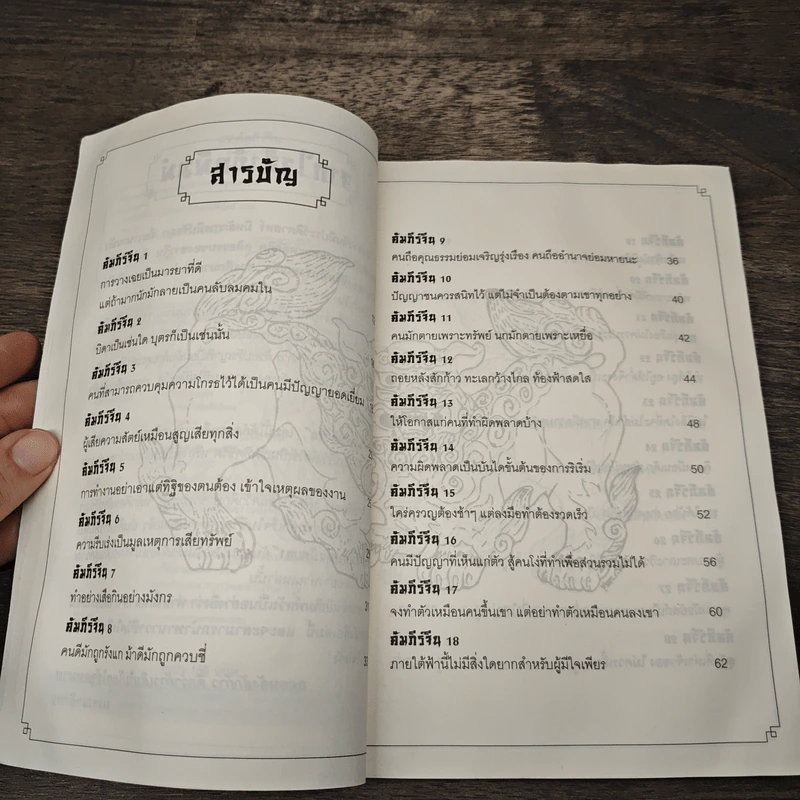 สารบัญ
คัมภีร์จีน 1
การวางเฉยเป็นมารยาที่ดี
แต่ถ้ามากนักมักลายเป็นคนลับลมคมใน
คัมภีร์จีน 2
บิดาเป็นเช่นใด บุตรก็เป็นเช่นนั้น
คัมภีร์จีน 3
คนที่สามารถควบคุมความโกรธไว้ได้เป็นคนมีปัญญายอดเยี่ยม
คัมภีร์จีน 4
ผู้เสียความสัตย์เหมือนสูญเสียทุกสิ่ง
คัมภีร์จีน 5
การทำงานอย่าเอาแต่ทิฐิของตนต้อง เข้าใจเหตุผลของงาน
คัมภีร์จีน 6
ความรีบเร่งเป็นมูลเหตุการเสียทรัพย์
คัมภีร์จีน 7
ทำอย่างเสือกินอย่างมังกร
คัมภีร์จีน 8
คนดีมักถูกรังแก ม้าดีมักถูกควบขี่
คัมภีร์จีน 9
คนถือคุณธรรมย่อมเจริญรุ่งเรือง คนถืออำนาจย่อมหายนะ 36
คัมภีร์จีน 10
ปัญญาชนควรสนิทไว้ แต่ไม่จำเป็นต้องตามเขาทุกอย่าง 40
คัมภีร์จีน 11
คนมักตายเพราะทรัพย์ นกมักตายเพราะเหยื่อ 42
คัมภีร์จีน 12
ถอยหลังสักก้าว ทะเลกว้างไกล ท้องฟ้าสดใส 44
คัมภีร์จีน 13
ให้โอกาสแก่คนที่ทำผิดพลาดบ้าง 48
คัมภีร์จีน 14
ความผิดพลาดเป็นบันไดขั้นต้นของการริเริ่ม 50
คัมภีร์จีน 15
ใคร่ครวญต้องช้าๆ แต่ลงมือทำต้องรวดเร็ว 52
คัมภีร์จีน 16
คนมีปัญญาที่เห็นแก่ตัว สู้คนโง่ที่ทำเพื่อส่วนรวมไม่ได้ 56
คัมภีร์จีน 17
จงทำตัวเหมือนคนขึ้นเขา แต่อย่าทำตัวเหมือนคนลงเขา 60
คัมภีร์จีน 18
ภายใต้ฟ้านี้ไม่มีสิ่งใดยากสำหรับผู้มีใจเพียร 62